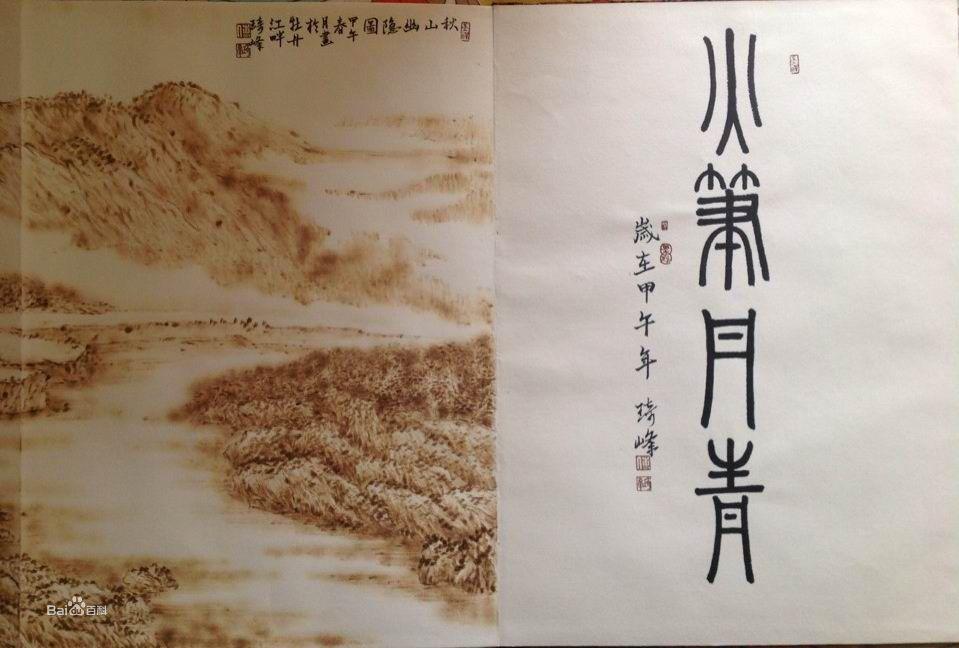 火筆丹青
歲在甲午年 琦峰
秋山幽隐圖
甲午
春
月畫
於
牡丹
江畔
琦峰
Bai百科